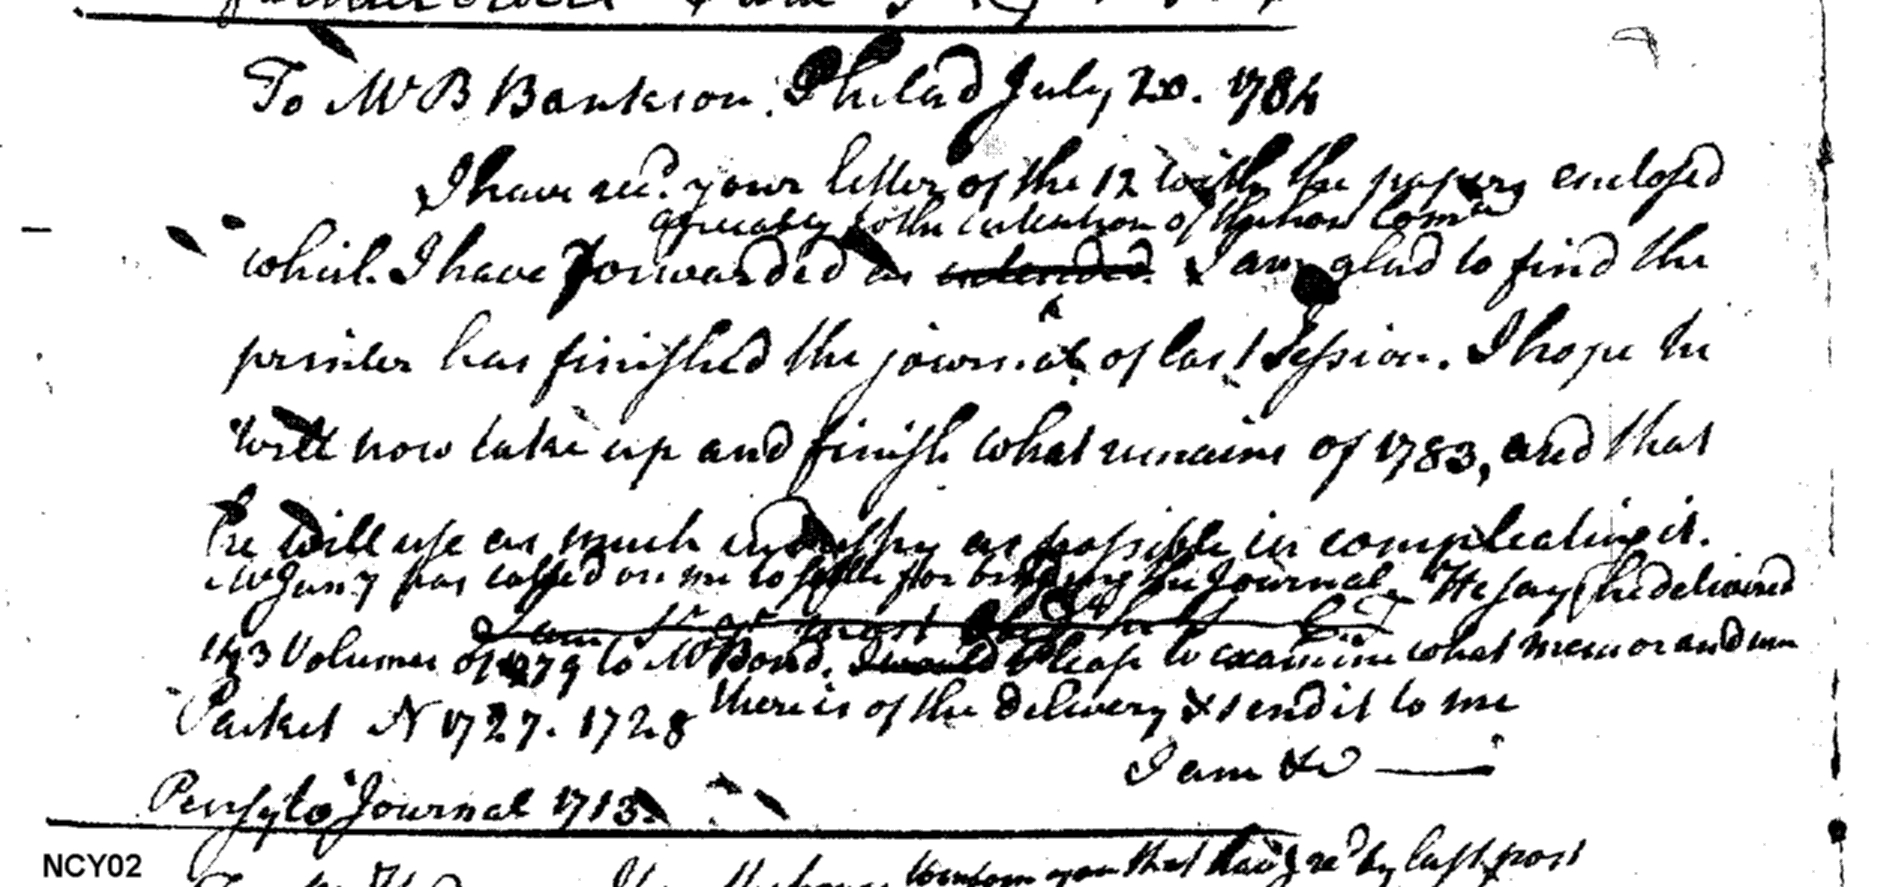 To Mr B Bankson. Philad July 20. 1784
I have recd. your letter of the 12 with the papers enclosed
agreeably to the intention of the hon Comee
which I have forwarded as intended. I am glad to find the
printer has finished the journal of last Session. I hope he
will now take up and finish what remains of 1783, and that
he will use as much industry as possible in compleating it.
Mr has called on me to settle for binding the Journal. He says he delivered
I am Sr yr most obedt
the 3 Volumes of 1779 to Mr Bond. I would Please to examine what memorandum
there is of the delivery & send it to me
Packet N 1727. 1728
I am &c
Pensyla Journal 1713.
to inform you that have recd by last post
NCY02